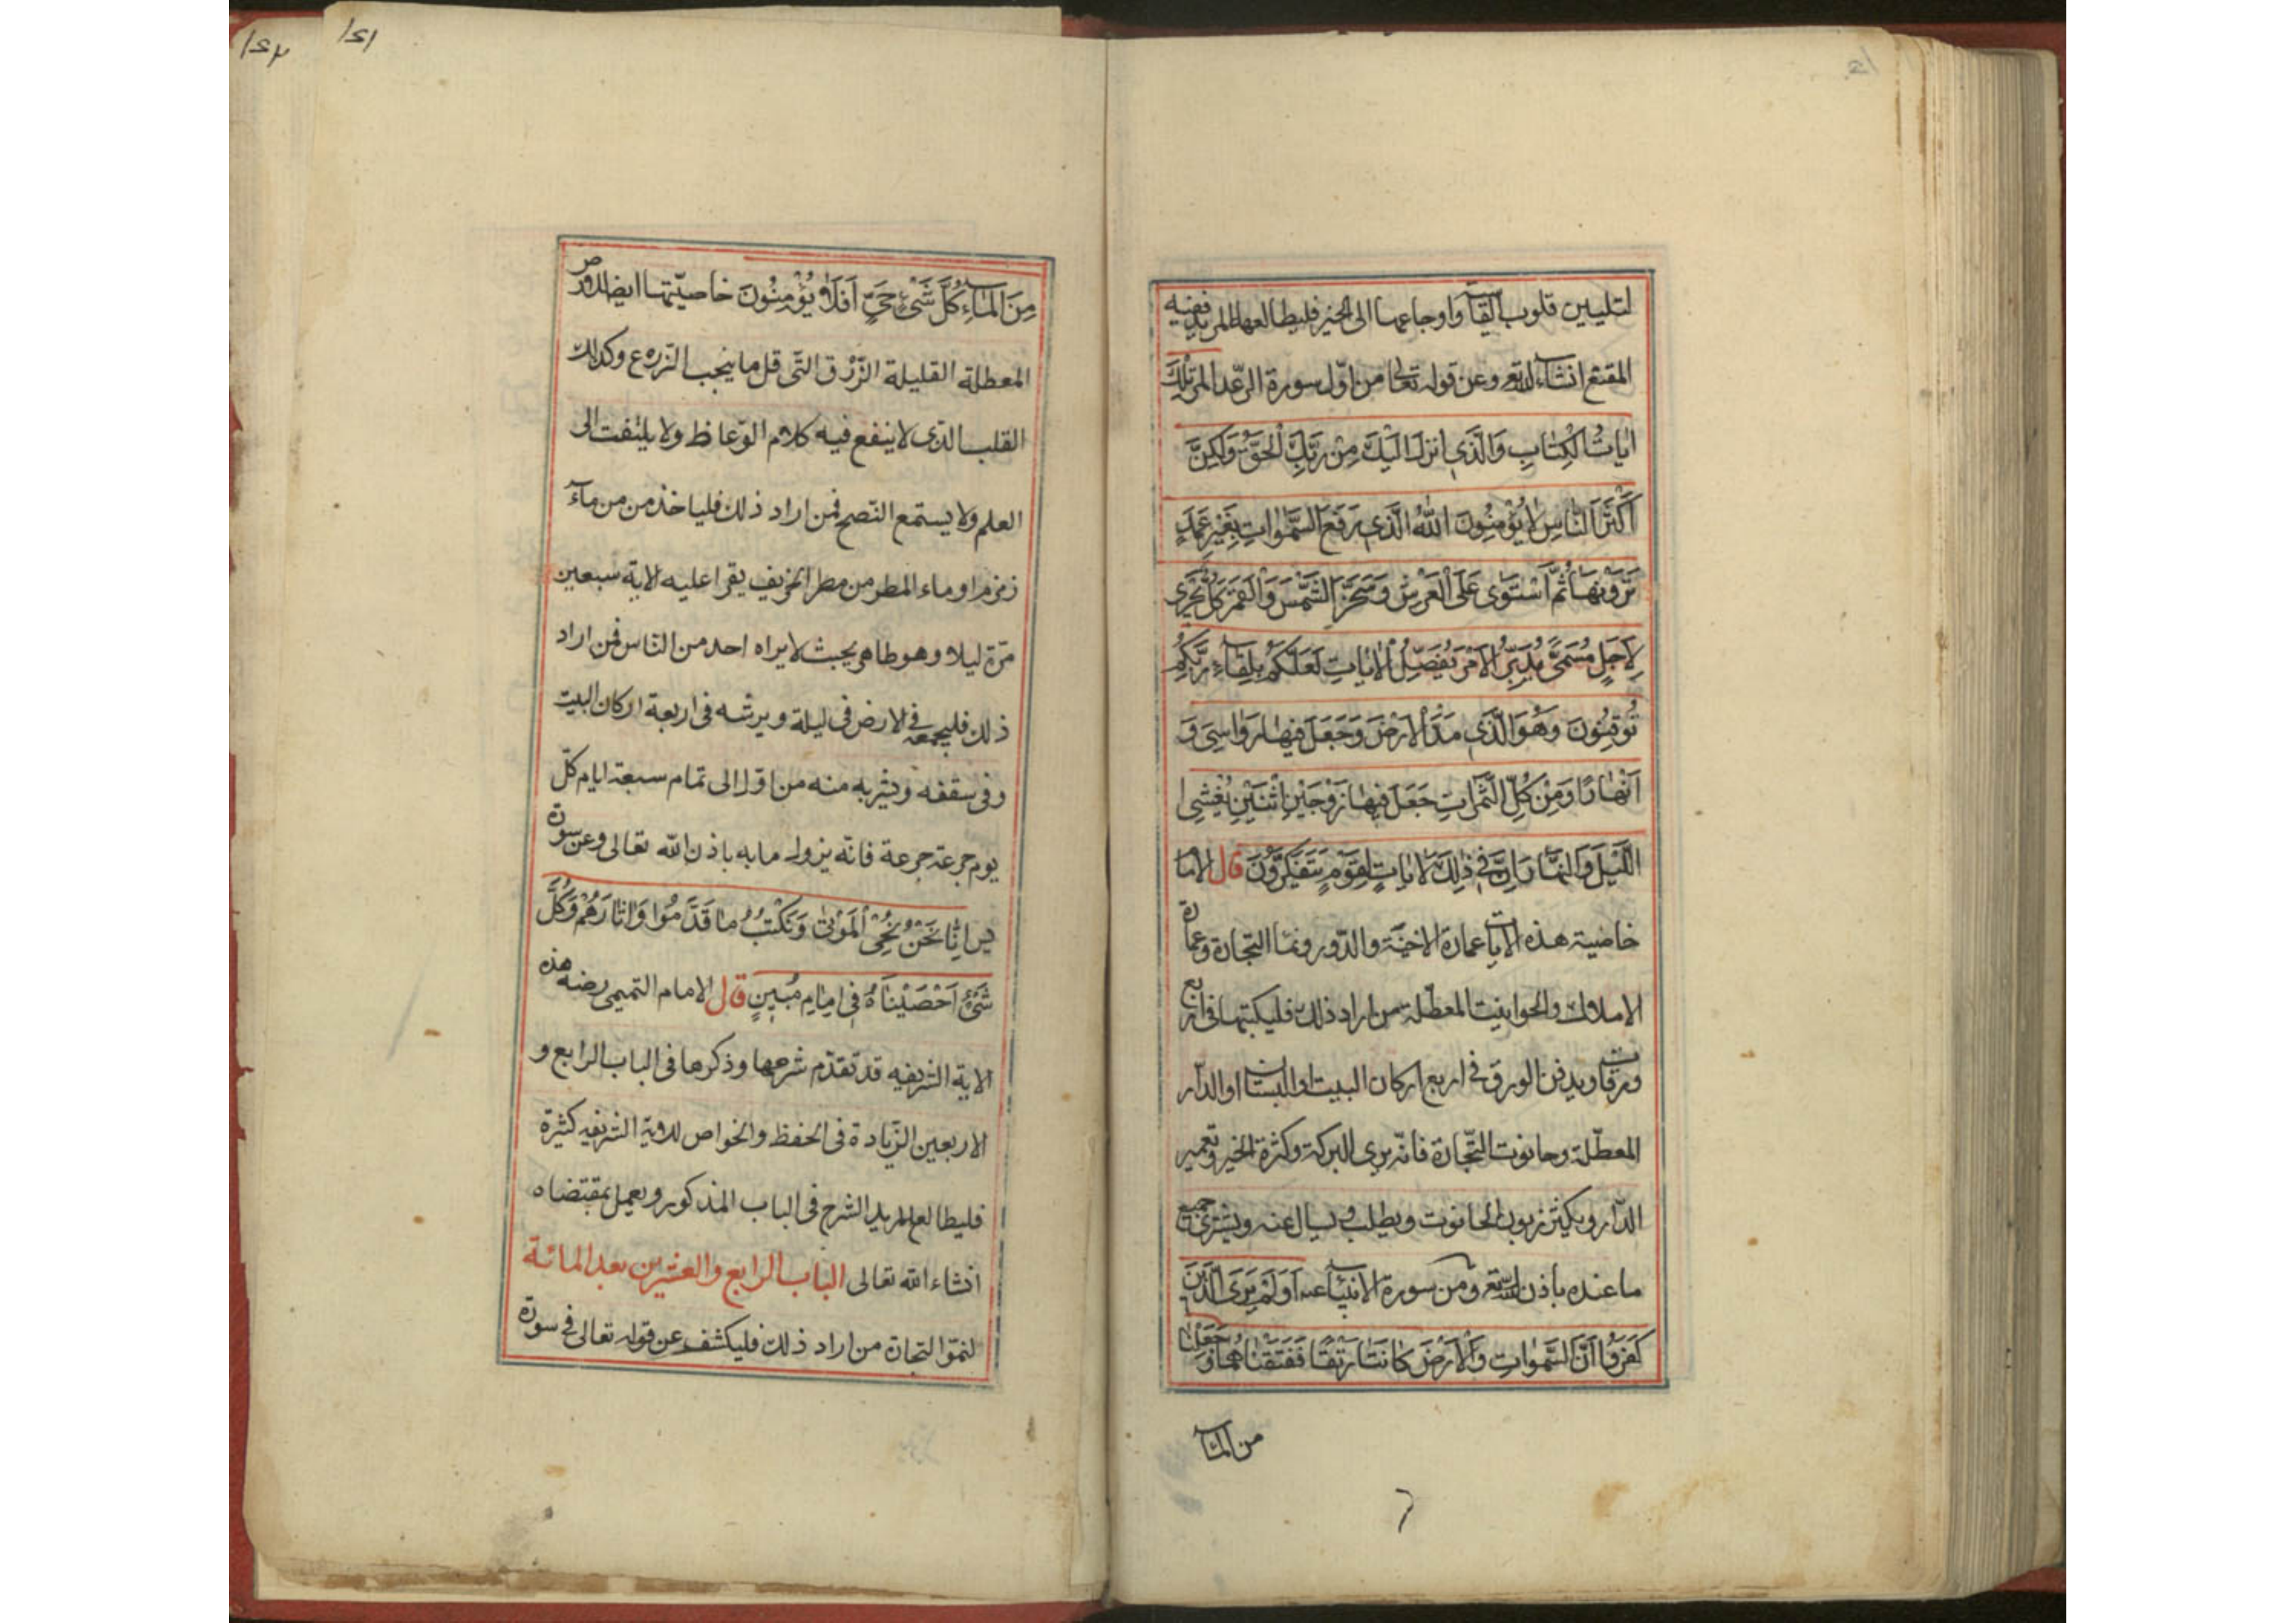 لتليين قلوب القساة واوجاعها الى الخير فليطالعها المريد ففيه
المقنع انشاء الله تع وعن قوله تعالى من اوّل سورة الرّعد المر تِلْكَ
اٰيَاتُ الْكِتَابِ وَالَّذِي اُنْزِلَ اِلَيْكَ مِنْ رَبِّكَ الْحَقُّ وَلٰكِنَّ
اَكْثَرَ النَّاسِ لَا يُؤْمِنُونَ اَللّٰهُ الَّذِي رَفَعَ السَّمٰوَاتِ بِغَيْرِ عَمَدٍ
تَرَوْنَهَا ثُمَّ اسْتَوٰى عَلَى الْعَرْشِ وَسَخَّرَ الشَّمْسَ وَالْقَمَرَ كُلٌّ يَجْرِي
لِاَجَلٍ مُسَمًّى يُدَبِّرُ الْاَمْرَ يُفَصِّلُ الْاٰيَاتِ لَعَلَّكُمْ بِلِقَآءِ رَبِّكُمْ
تُوقِنُونَ وَهُوَ الَّذِي مَدَّ الْاَرْضَ وَجَعَلَ فِيهَا رَوَاسِيَ وَ
اَنْهَارًا وَمِنْ كُلِّ الثَّمَرَاتِ جَعَلَ فِيهَا زَوْجَيْنِ اثْنَيْنِ يُغْشِي
اللَّيْلَ وَالنَّهَارَ اِنَّ فِي ذٰلِكَ لَاٰيَاتٍ لِقَوْمٍ يَتَفَكَّرُونَ قال الامام
خاصية هذه الايات عمارة الاخنة والدّور ونما التجارة وعمارة
الاملاك والحوانيت المعطّلة من اراد ذلك فليكتبها فى اربع
ورقات ويدفن الورق فى اربع اركان البيت او البستان او الدّار
المعطّلة وحانوت التّجارة فانّه يرى البركة وكثرة الخير وتعمير
الدّار ويكثر زبون الحانوت ويطلب ويسال عنه ويشترى جميع
ما عنده باذن الله تع ومن سورة الانبيآء عم اَوَلَمْ يَرَ الَّذِينَ
كَفَرُوا اَنَّ السَّمٰوَاتِ وَالْاَرْضَ كَانَتَا رَتْقًا فَفَتَقْنَاهُمَا وَجَعَلْنَا
من المآء
مِنَ الْمَآءِ كُلَّ شَيْءٍ حَيٍّ اَفَلَا يُؤْمِنُونَ خاصيّتها ايضا للارض
المعطلة القليلة الرّزق التّى قل ما ينجب الزرع وكذلك
القلب الذى لا ينفع فيه كلام الوعاظ ولا يلتفت الى
العلم ولا يستمع النّصح فمن اراد ذلك فلياخذ من من مآء
زمزم او ماء المطر من مطر الخريف يقرا عليه الاية سبعين
مرّة ليلا وهو طاهر بحيث لا يراه احد من النّاس فمن اراد
ذلك فليجمعه فى الارض فى ليلة ويرشه فى اربعة اركان البيت
وفى سقفه ويشربه منه من اوّل الى تمام سبعة ايام كلّ
يوم جرعة جرعة فانّه يزول ما به باذن الله تعالى وعن سورة
يس اِنَّا نَحْنُ نُحْيِ الْمَوْتٰى وَنَكْتُبُ مَا قَدَّمُوا وَاٰثَارَهُمْ وَكُلَّ
شَيْءٍ اَحْصَيْنَاهُ فِي اِمَامٍ مُبِينٍ قال الامام التميمى رضه هذه
الاية الشريفه قد تقدّم شرحها وذكرها فى الباب الرابع و
الاربعين الزّيادة فى الحفظ والخواص للاية الشريفه كثيرة
فليطالع المريد الشرح فى الباب المذكور ويعمل بمقتضاه
انشاء الله تعالى الباب الرابع والعشرين بعد المائة
لنموّ التجارة من اراد ذلك فليكشف عن قوله تعالى فى سورة